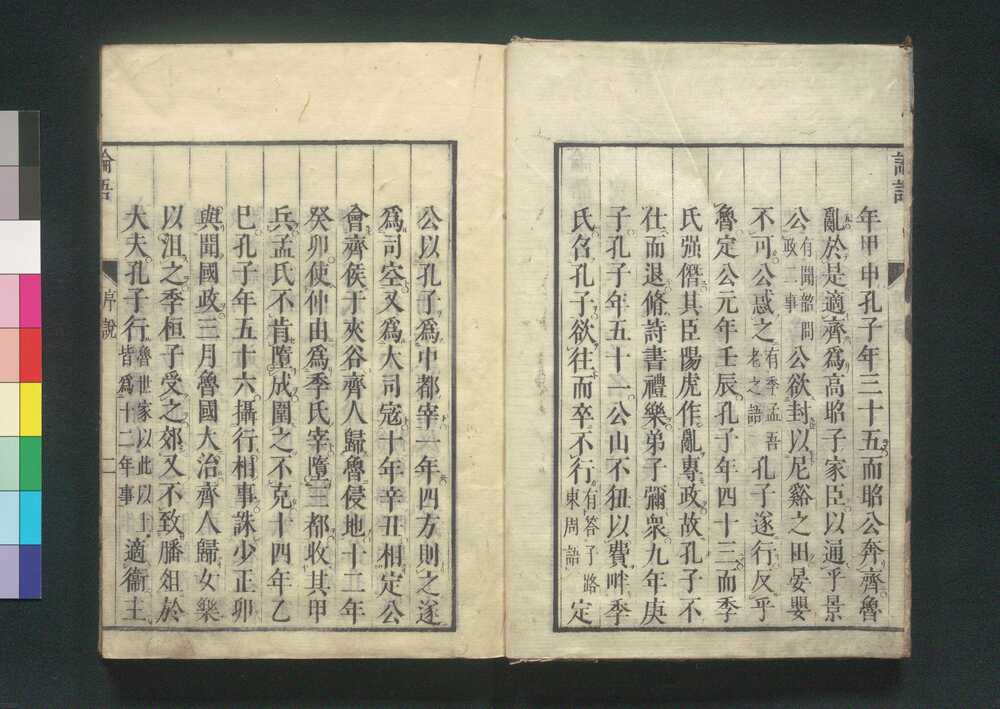 論語
年甲申孔子年三十五而昭公奔齊魯
亂於是適齊爲高昭子家臣以通乎景
公有聞韶問政二事公欲封以尼谿之田晏嬰
不可公惑之有季孟吾老之語孔子遂行反乎
魯定公元年壬辰孔子年四十三而季
氏强僭其臣陽虎作亂專政故孔子不
仕而退脩詩書禮樂弟子彌衆九年庚
子孔子年五十一公山不狃以費畔季
氏召孔子欲往而卒不行有答子路東周語定
公以孔子爲中都宰一年四方則之遂
爲司空又爲大司寇十年辛丑相定公
會齊侯于夾谷齊人歸魯侵地十二年
癸卯使仲由爲季氏宰墮三都收其甲
兵孟氏不肯墮成圍之不克十四年乙
巳孔子年五十六攝行相事誅少正卯
與聞國政三月魯國大治齊人歸女樂
以沮之季桓子受之郊又不致膰俎於
大夫孔子行魯世家以此以上皆爲十二年事適衞主
論語
序說
二